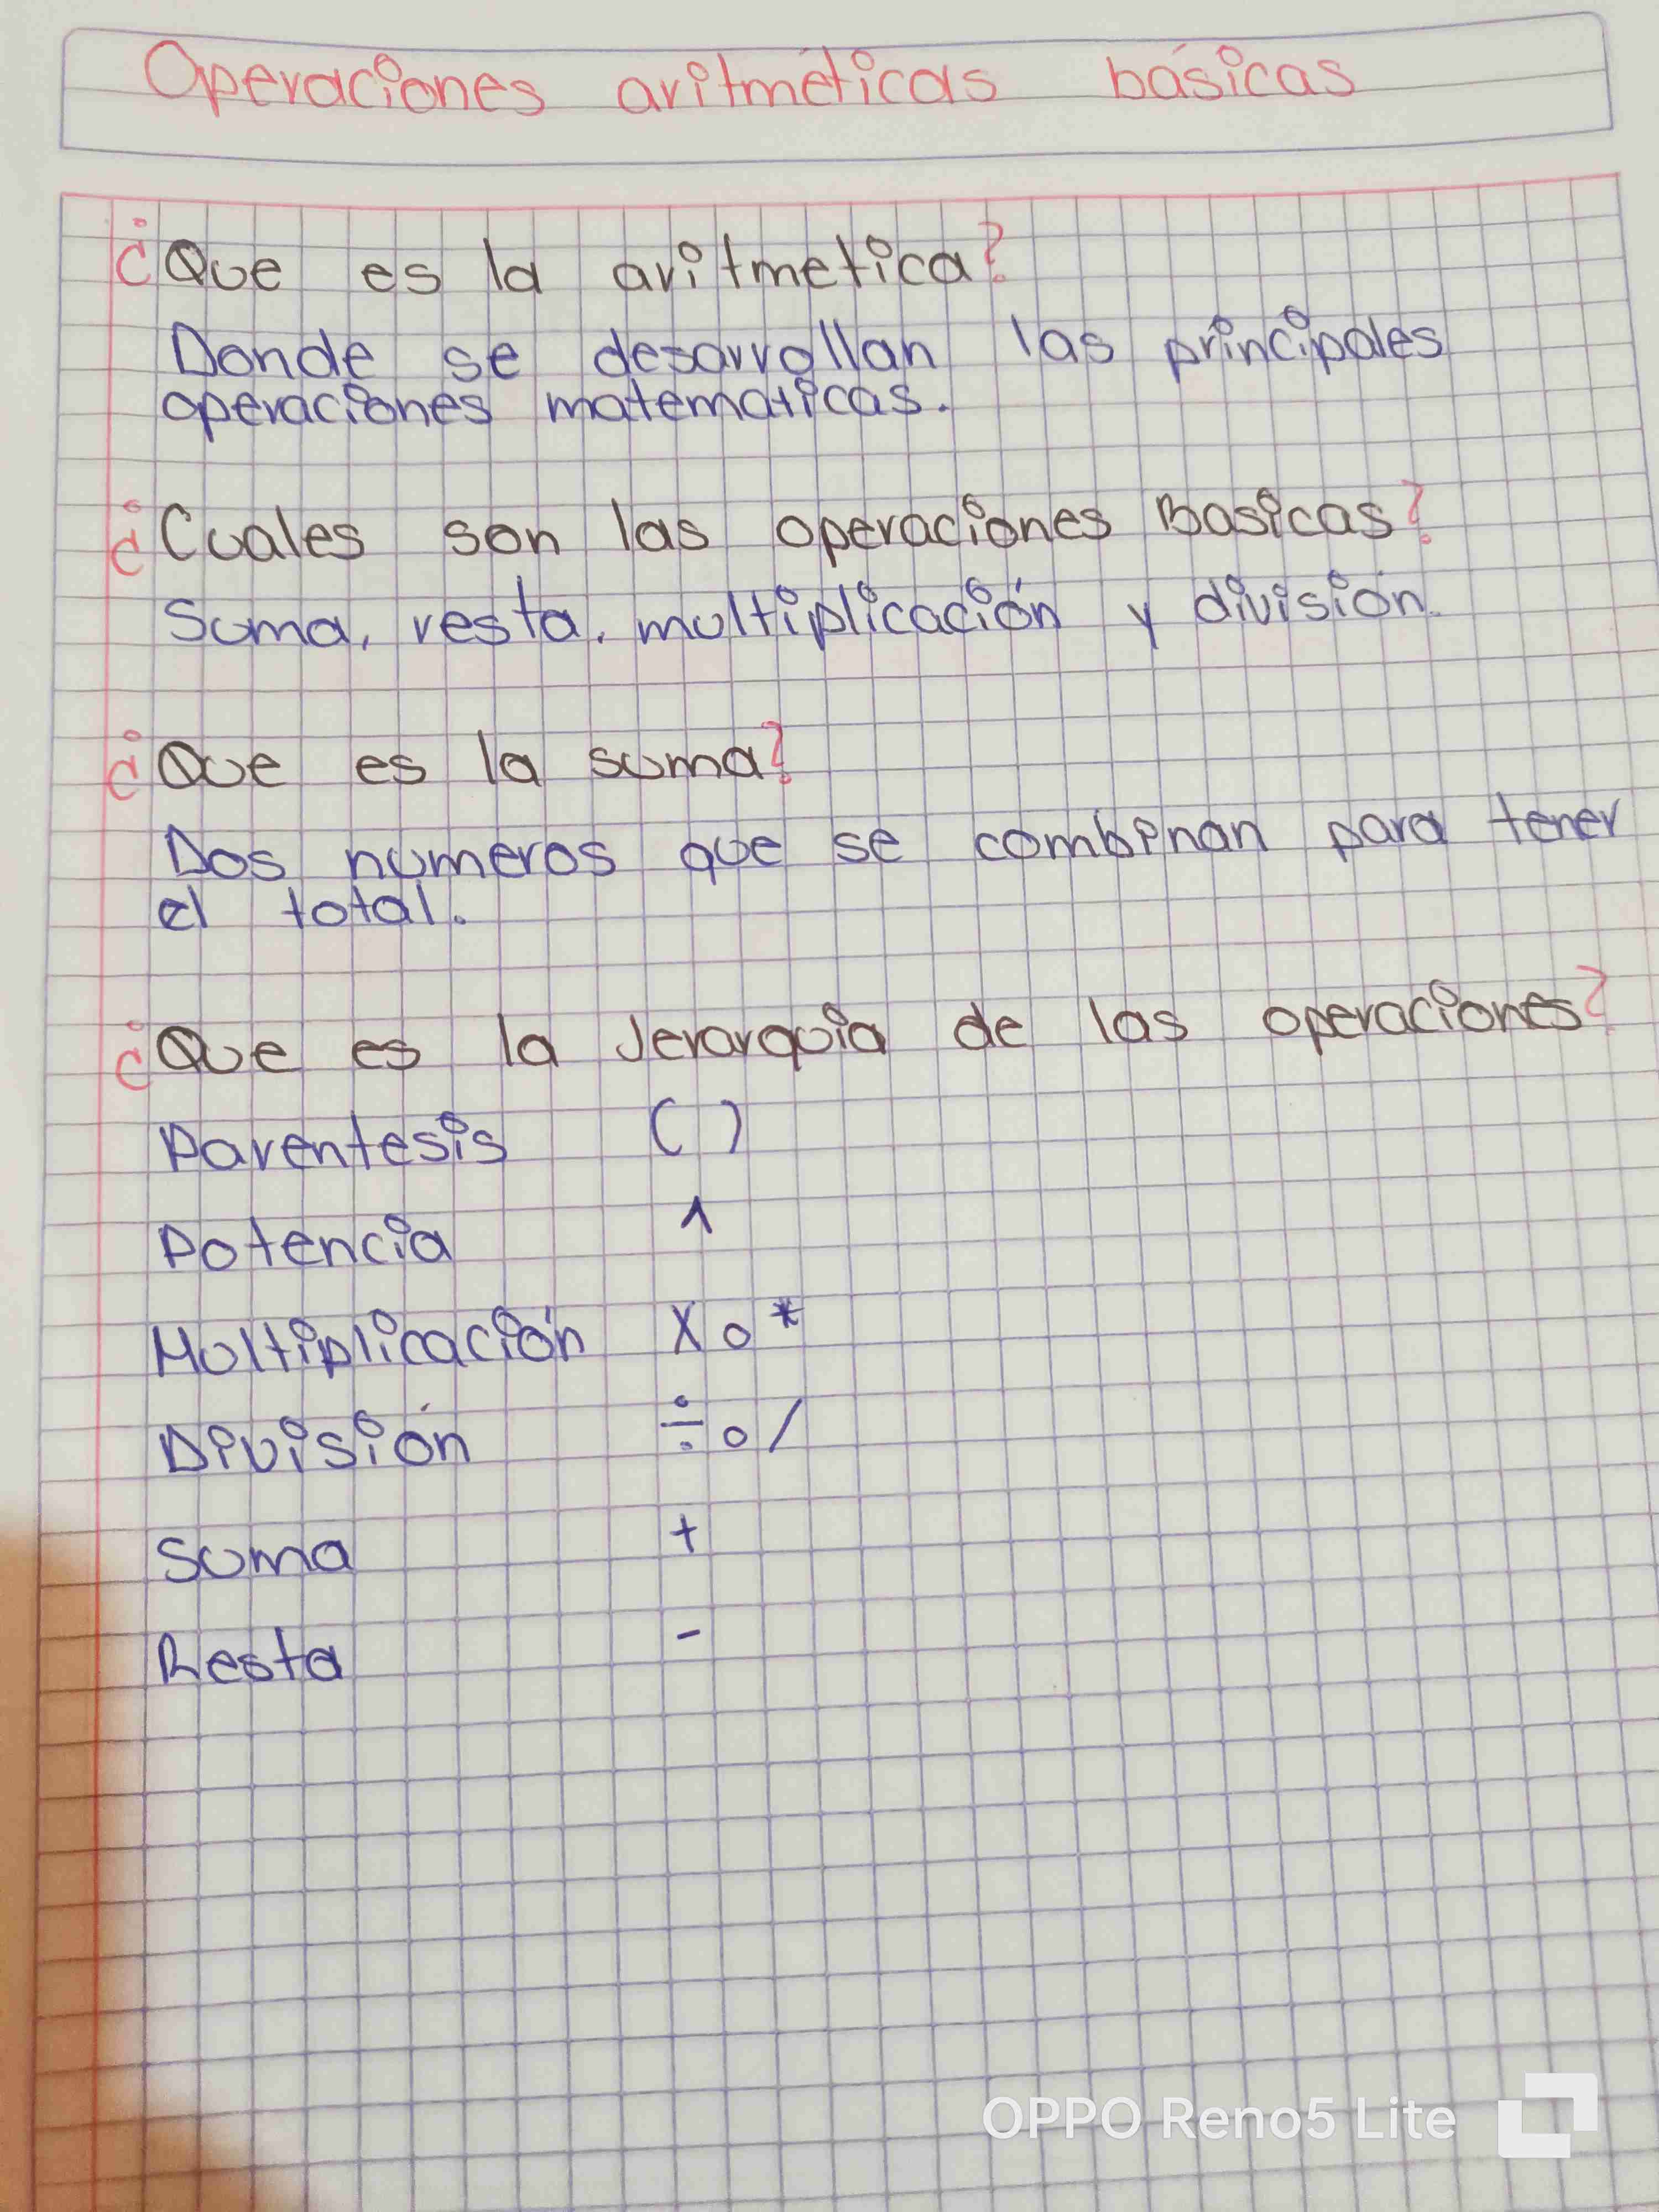 Operaciones aritméticas básicas
¿Que es la aritmetica?
Donde se desarrollan las principales
operaciones matematicas.
¿Cuales son las operaciones Basicas?
Suma, resta, multiplicación y división.
¿Que es la suma?
Dos numeros que se combinan para tener
el total.
¿Que es la Jerarquia de las operaciones?
Parentesis ( )
Potencia ^
Multiplicación X o *
División ÷ o /
Suma +
Resta -
OPPO Reno5 Lite